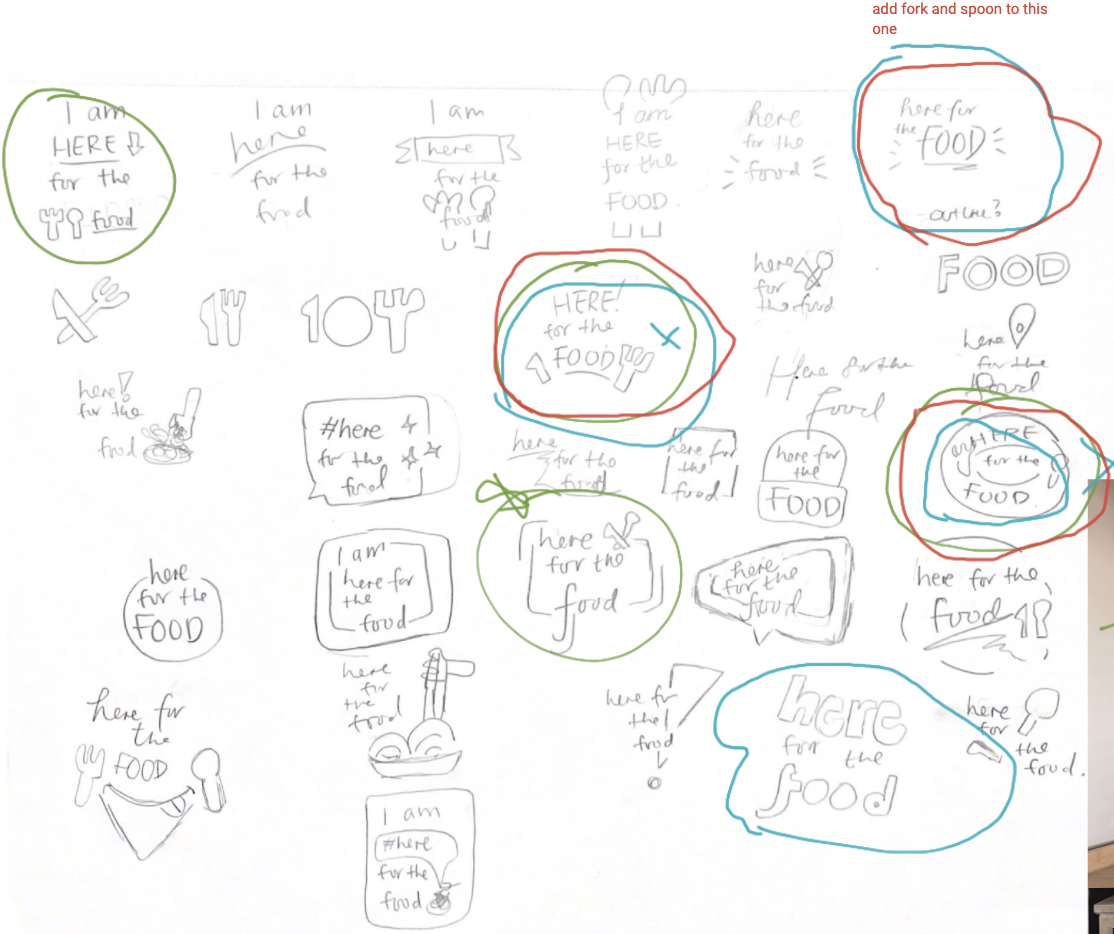 add fork and spoon to this
one
I am
HERE
for the
food
I am
here
for the
food
I am
here
for the
food
I am
HERE
for the
FOOD.
here
for the
food
here for
the FOOD
-outline?
HERE!
for the
FOOD
here
for
the food
FOOD
here
for the
food
here!
for the
food
#here
for the
food
here
for the
food
here for
the
food
Here for the
food
here for
the
FOOD
HERE
for the
FOOD
here
for the
FOOD
I am
here for
the
food
here
for the
food
here
for the
food
here for the
food
here for
the
FOOD
here
for
the
food
here for
the
food
here
for the
food
here
for
the
food.
I am
#here
for the
food